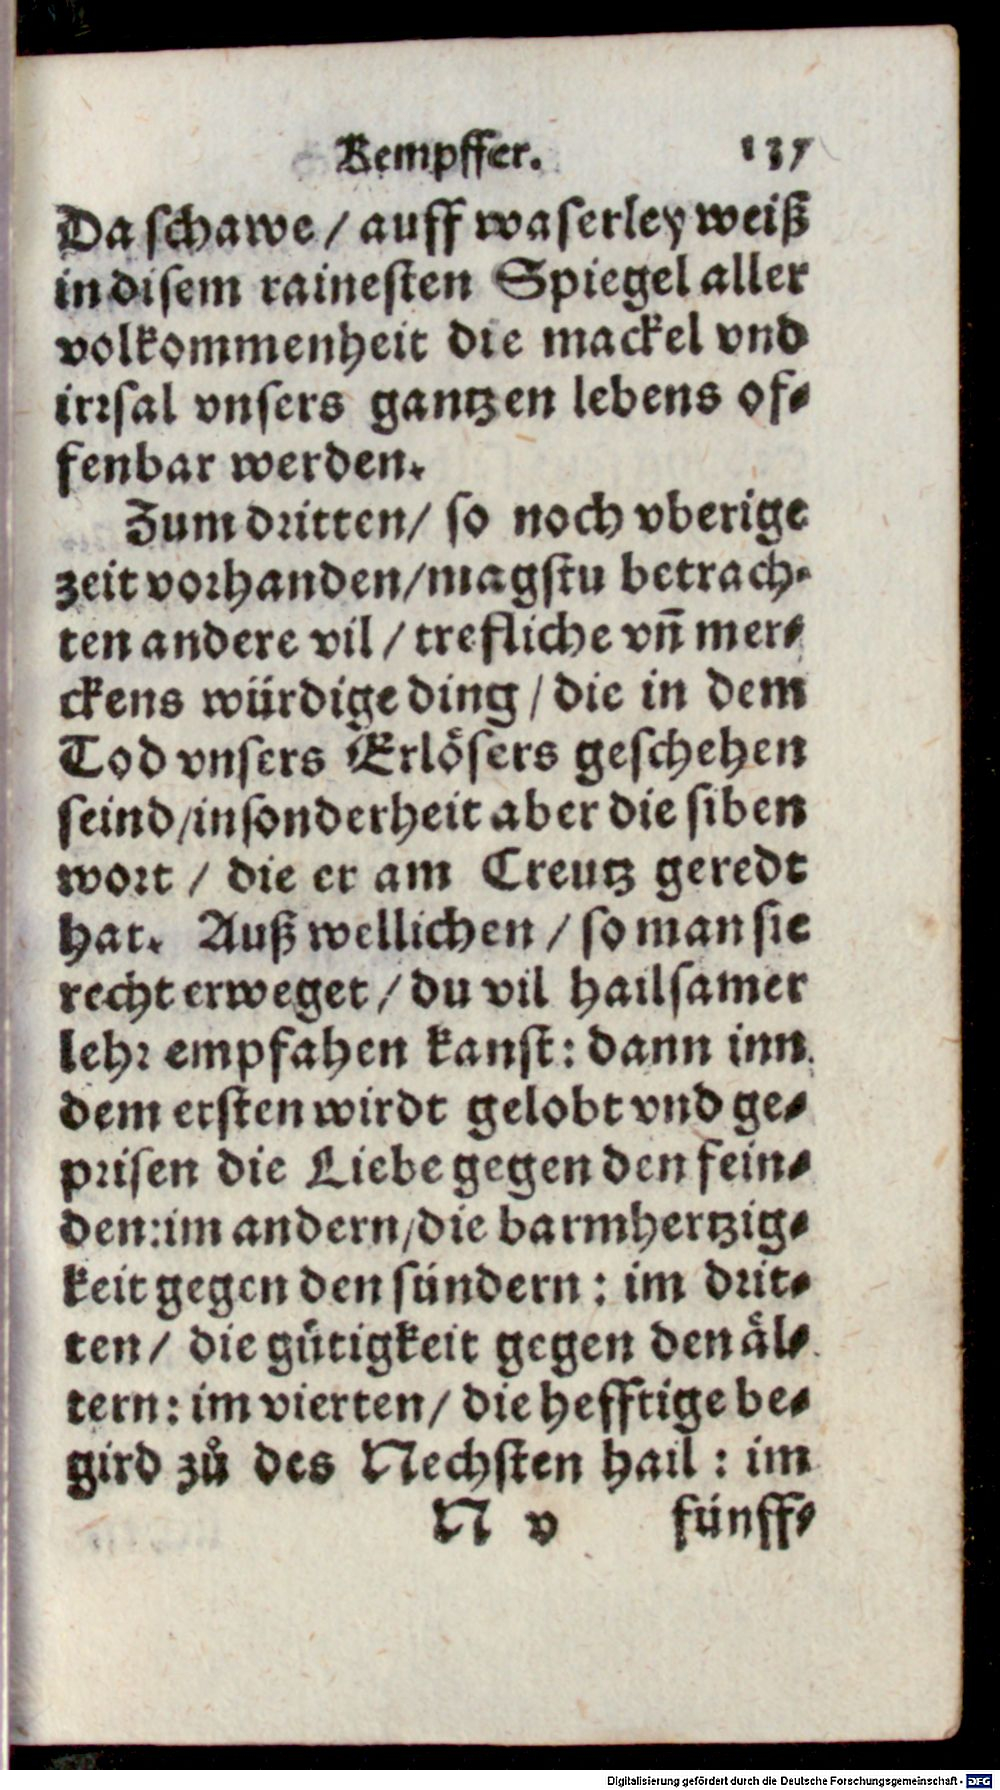 Kempffer. 137
Da schawe / auff waserley weiß
in disem rainesten Spiegel aller
volkommenheit die mackel vnd
irrsal vnsers gantzen lebens of-
fenbar werden.
Zum dritten / so noch vberige
zeit vorhanden / magstu betrach-
ten andere vil / trefliche vñ mer-
ckens würdige ding / die in dem
Tod vnsers Erlösers geschehen
seind / insonderheit aber die siben
wort / die er am Creutz geredt
hat. Auß wellichen / so man sie
recht erweget / du vil hailsamer
lehr empfahen kanst: dann inn
dem ersten wirdt gelobt vnd ge-
prisen die Liebe gegen den fein-
den: im andern / die barmhertzig-
keit gegen den sündern: im drit-
ten / die gütigkeit gegen den äl-
tern: im vierten / die hefftige be-
gird zů des Nechsten hail: im
N v fünff-
Digitalisierung gefördert durch die Deutsche Forschungsgemeinschaft - DFG